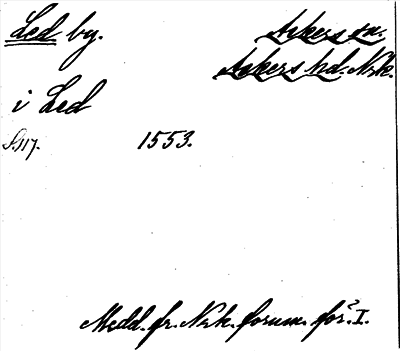 Led by.
Askers sn.
Askers hd. Nrk.
i Led
S. 117.
1553.
Medd. fr. Nrk. forum. för. I.